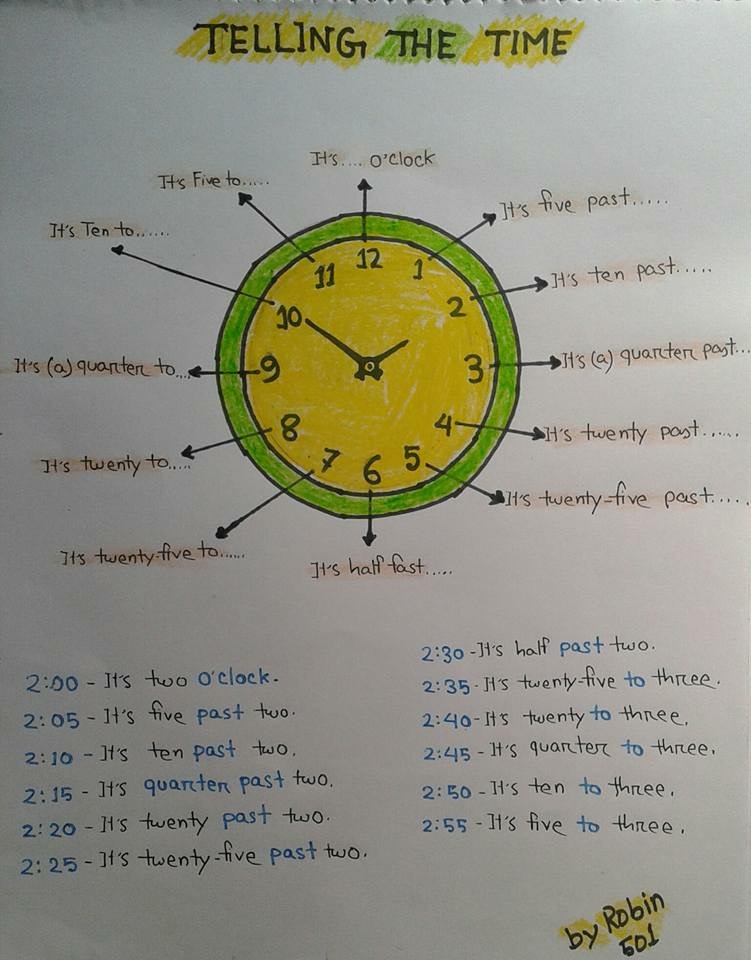 TELLING THE TIME
It's.... O'clock
It's Five to.....
It's five past.....
It's Ten to......
It's ten past.....
It's (a) quarter to...
It's (a) quarter past...
It's twenty to.....
It's twenty past......
It's twenty-five to......
It's twenty-five past.....
It's half fast.....
12
1
2
3
4
5
6
7
8
9
10
11
2:00 - It's two O'clock.
2:05 - It's five past two.
2:10 - It's ten past two.
2:15 - It's quarter past two.
2:20 - It's twenty past two.
2:25 - It's twenty-five past two.
2:30 - It's half past two.
2:35 - It's twenty-five to three.
2:40 - It's twenty to three.
2:45 - It's quarter to three.
2:50 - It's ten to three.
2:55 - It's five to three.
by Robin
501